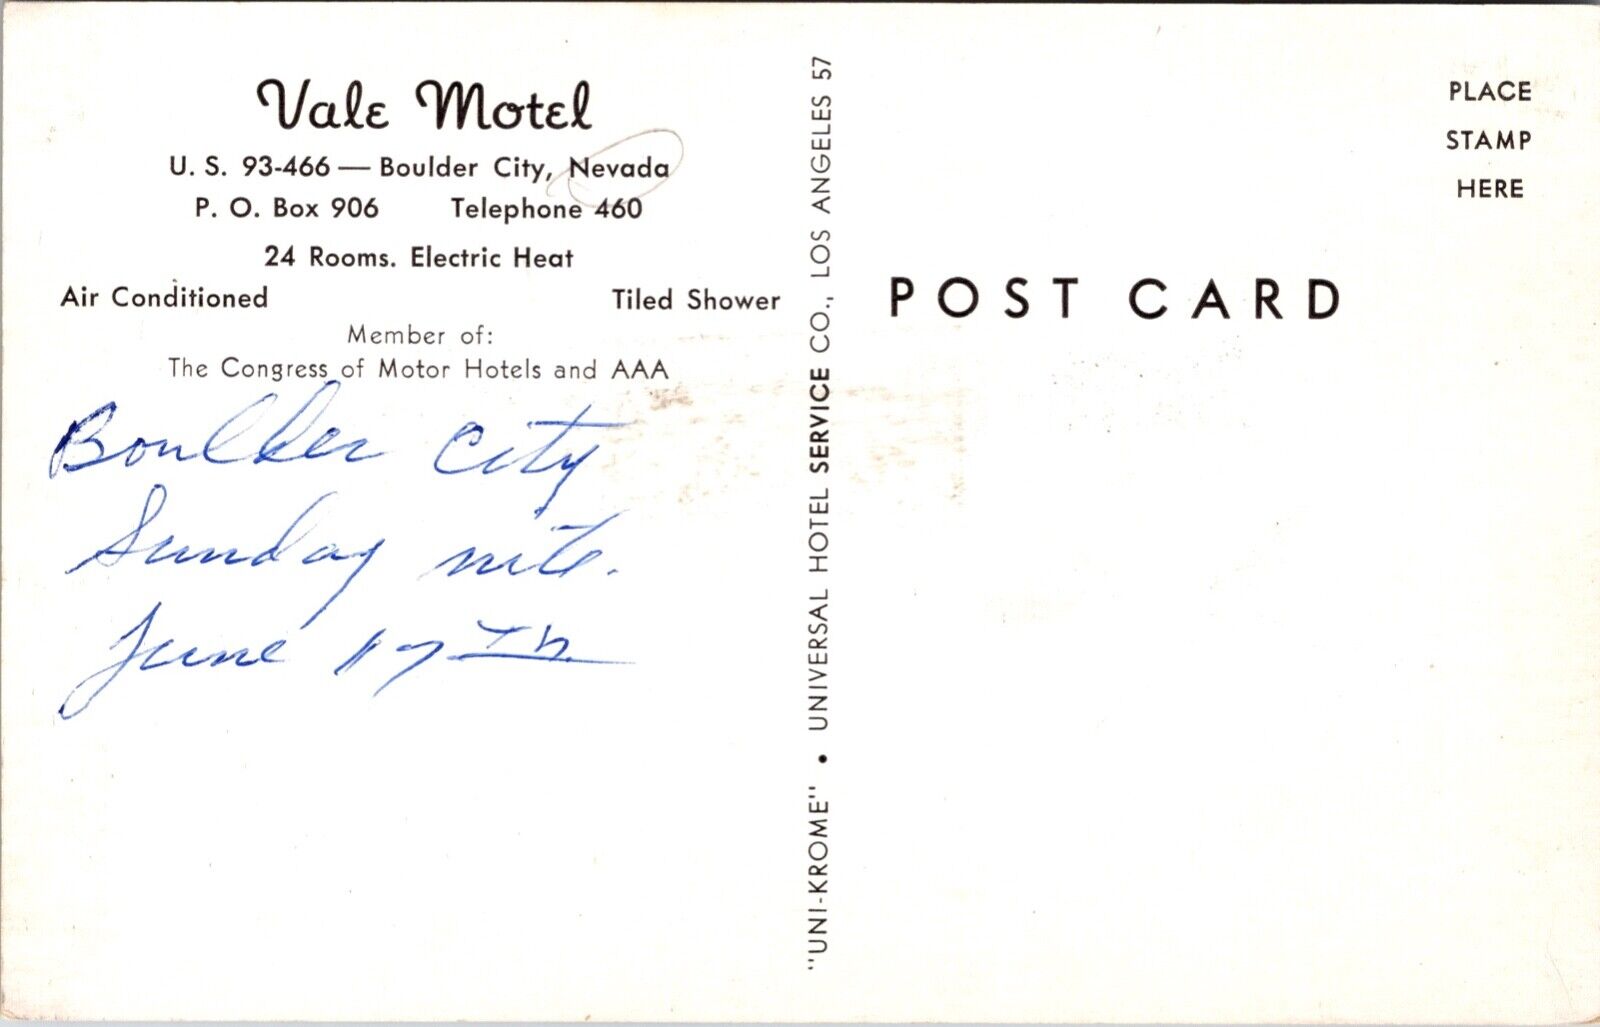 Vale Motel
U. S. 93-466 — Boulder City, Nevada
P. O. Box 906 Telephone 460
24 Rooms. Electric Heat
Air Conditioned Tiled Shower
Member of:
The Congress of Motor Hotels and AAA
Boulder City
Sunday nite.
June 17th
"UNI-KROME" • UNIVERSAL HOTEL SERVICE CO., LOS ANGELES 57
PLACE
STAMP
HERE
POST CARD